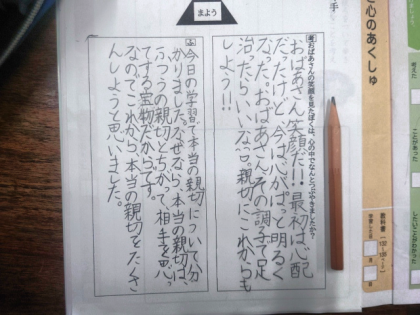 まよう
おばあさんの笑顔を見たぼくは、心の中でなんとつぶやきましたか?
おばあさん笑顔だ!!!最初は心配
だったけど、今は心がぱっと明るく
なった。おばあさんその調子で足
治たらいいな。親切にこれからも
しよう!!!
今日の学習で本当の親切について分
かりました。なぜなら、本当の親切は、
ふつうの親切とちがって、相手を思っ
てする宝物だからです。
なのでこれから、本当の親切をたくさ
んしようと思いました。
心のあくしゅ
教科書
学習した日
月
日
考えた
ことがあった
したいことがわかった